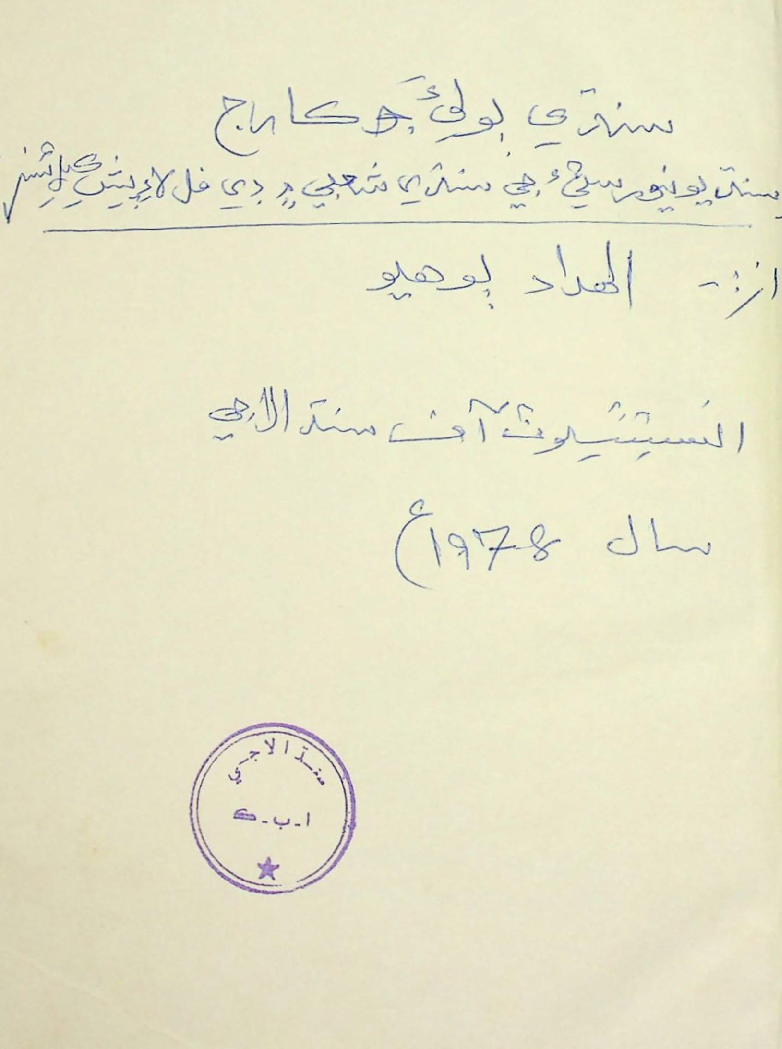 سنڌي ٻوليءَ جڪا سماج
سنڌ يونيورسٽيءَ جي سنڌي شعبي ۾ ڊي فل لاءِ پيش ڪيل
از:- الهداد ٻوهيو
انسٽيٽيوٽ آف سنڌالاجي
سال 1978ع
سنڌالاجي
ا-ب-ڪ